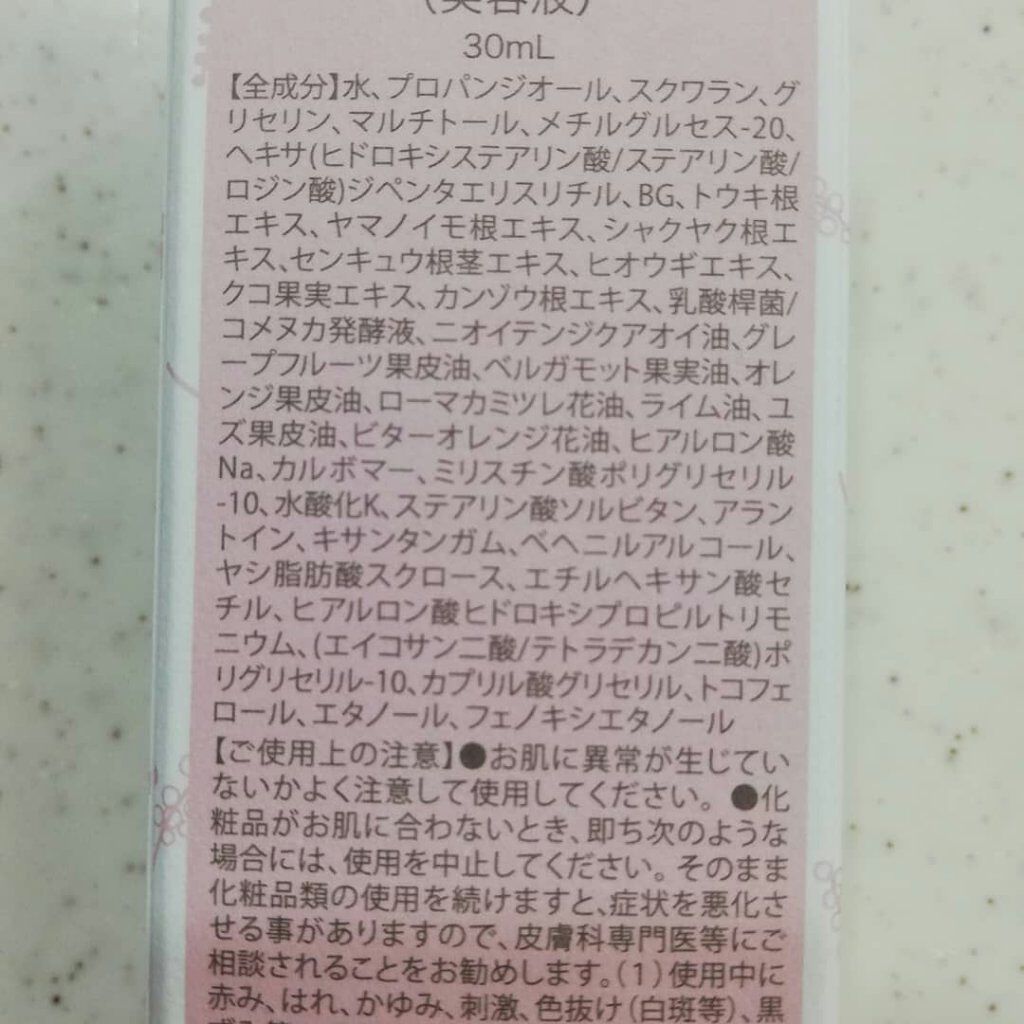 (美容液)
30mL
【全成分】水、プロパンジオール、スクワラン、グ
リセリン、マルチトール、メチルグルセス-20、
ヘキサ(ヒドロキシステアリン酸/ステアリン酸/
ロジン酸)ジペンタエリスリチル、BG、トウキ根
エキス、ヤマノイモ根エキス、シャクヤク根エ
キス、センキュウ根茎エキス、ヒオウギエキス、
クコ果実エキス、カンゾウ根エキス、乳酸桿菌/
コメヌカ発酵液、ニオイテンジクアオイ油、グレ
ープフルーツ果皮油、ベルガモット果実油、オレ
ンジ果皮油、ローマカミツレ花油、ライム油、ユ
ズ果皮油、ビターオレンジ花油、ヒアルロン酸
Na、カルボマー、ミリスチン酸ポリグリセリル
-10、水酸化K、ステアリン酸ソルビタン、アラン
トイン、キサンタンガム、ベヘニルアルコール、
ヤシ脂肪酸スクロース、エチルヘキサン酸セ
チル、ヒアルロン酸ヒドロキシプロピルトリモ
ニウム、(エイコサン二酸/テトラデカン二酸)ポ
リグリセリル-10、カプリル酸グリセリル、トコフェ
ロール、エタノール、フェノキシエタノール
【ご使用上の注意】●お肌に異常が生じてい
ないかよく注意して使用してください。●化
粧品がお肌に合わないとき、即ち次のような
場合には、使用を中止してください。そのまま
化粧品類の使用を続けますと、症状を悪化さ
せる事がありますので、皮膚科専門医等にご
相談されることをお勧めします。(1)使用中に
赤み、はれ、かゆみ、刺激、色抜け(白斑等)、黒